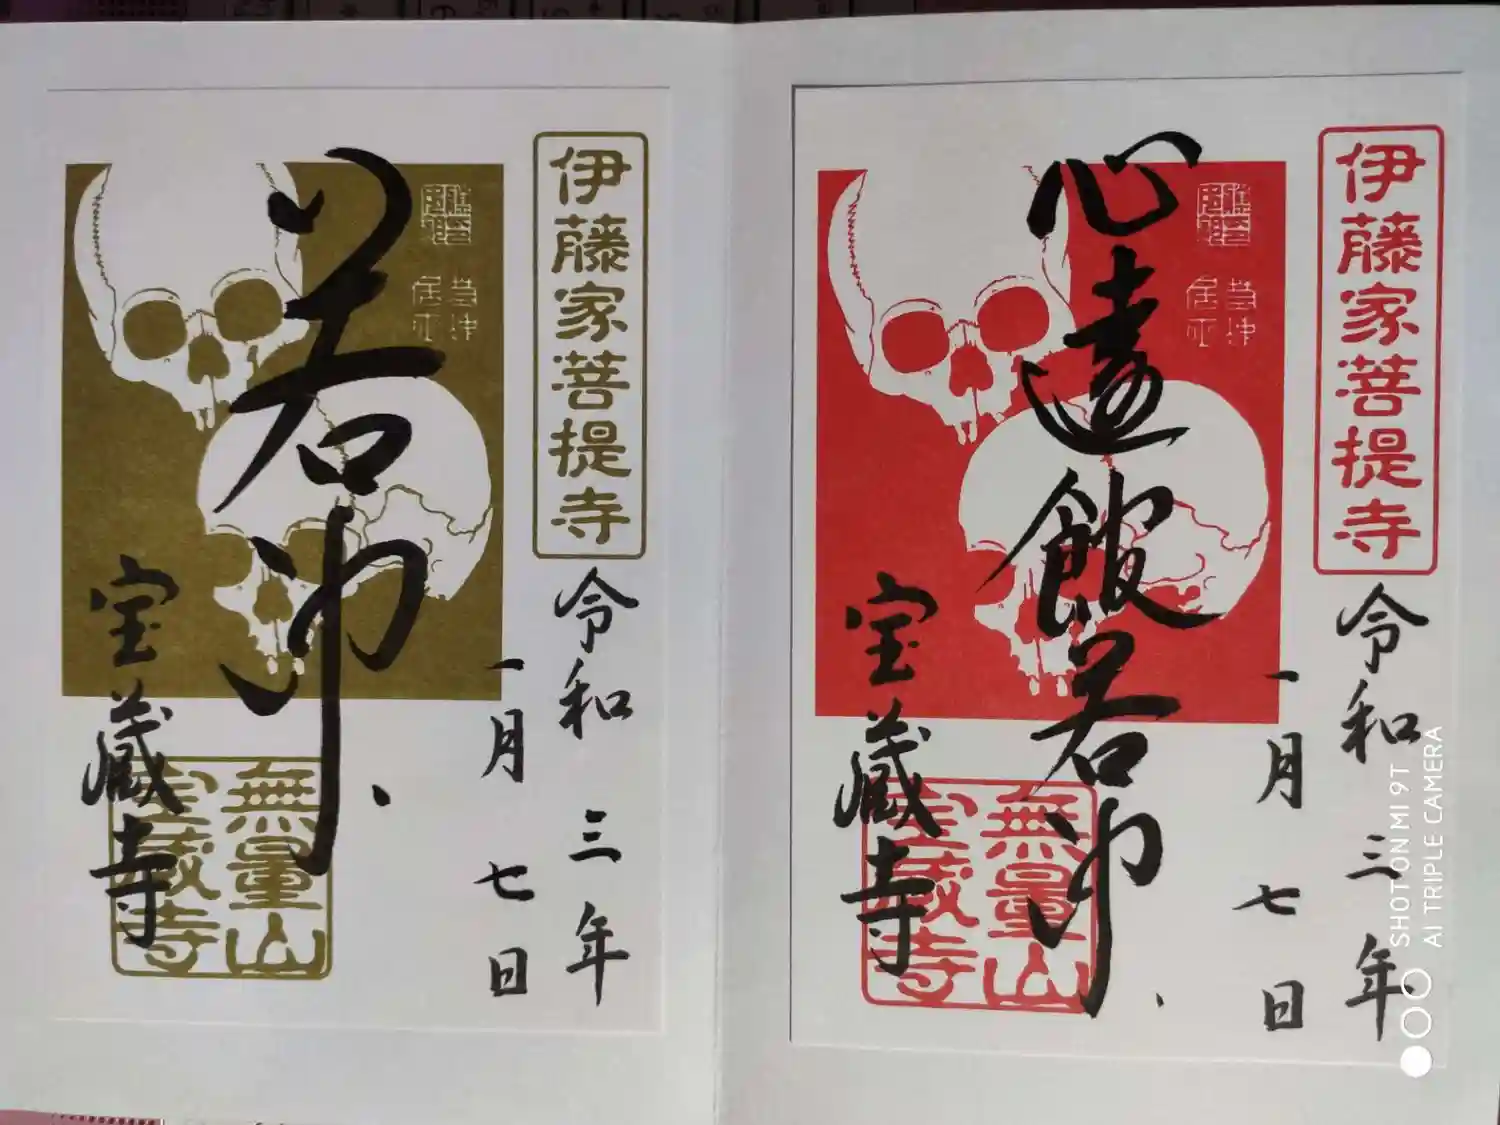 伊藤家菩提寺
令和三年
一月七日
心遠館若冲
無量山
宝蔵寺
宝蔵寺
伊藤家菩提寺
令和三年
一月七日
若冲
無量山
宝蔵寺
宝蔵寺
SHOT ON MI 9T
AI TRIPLE CAMERA